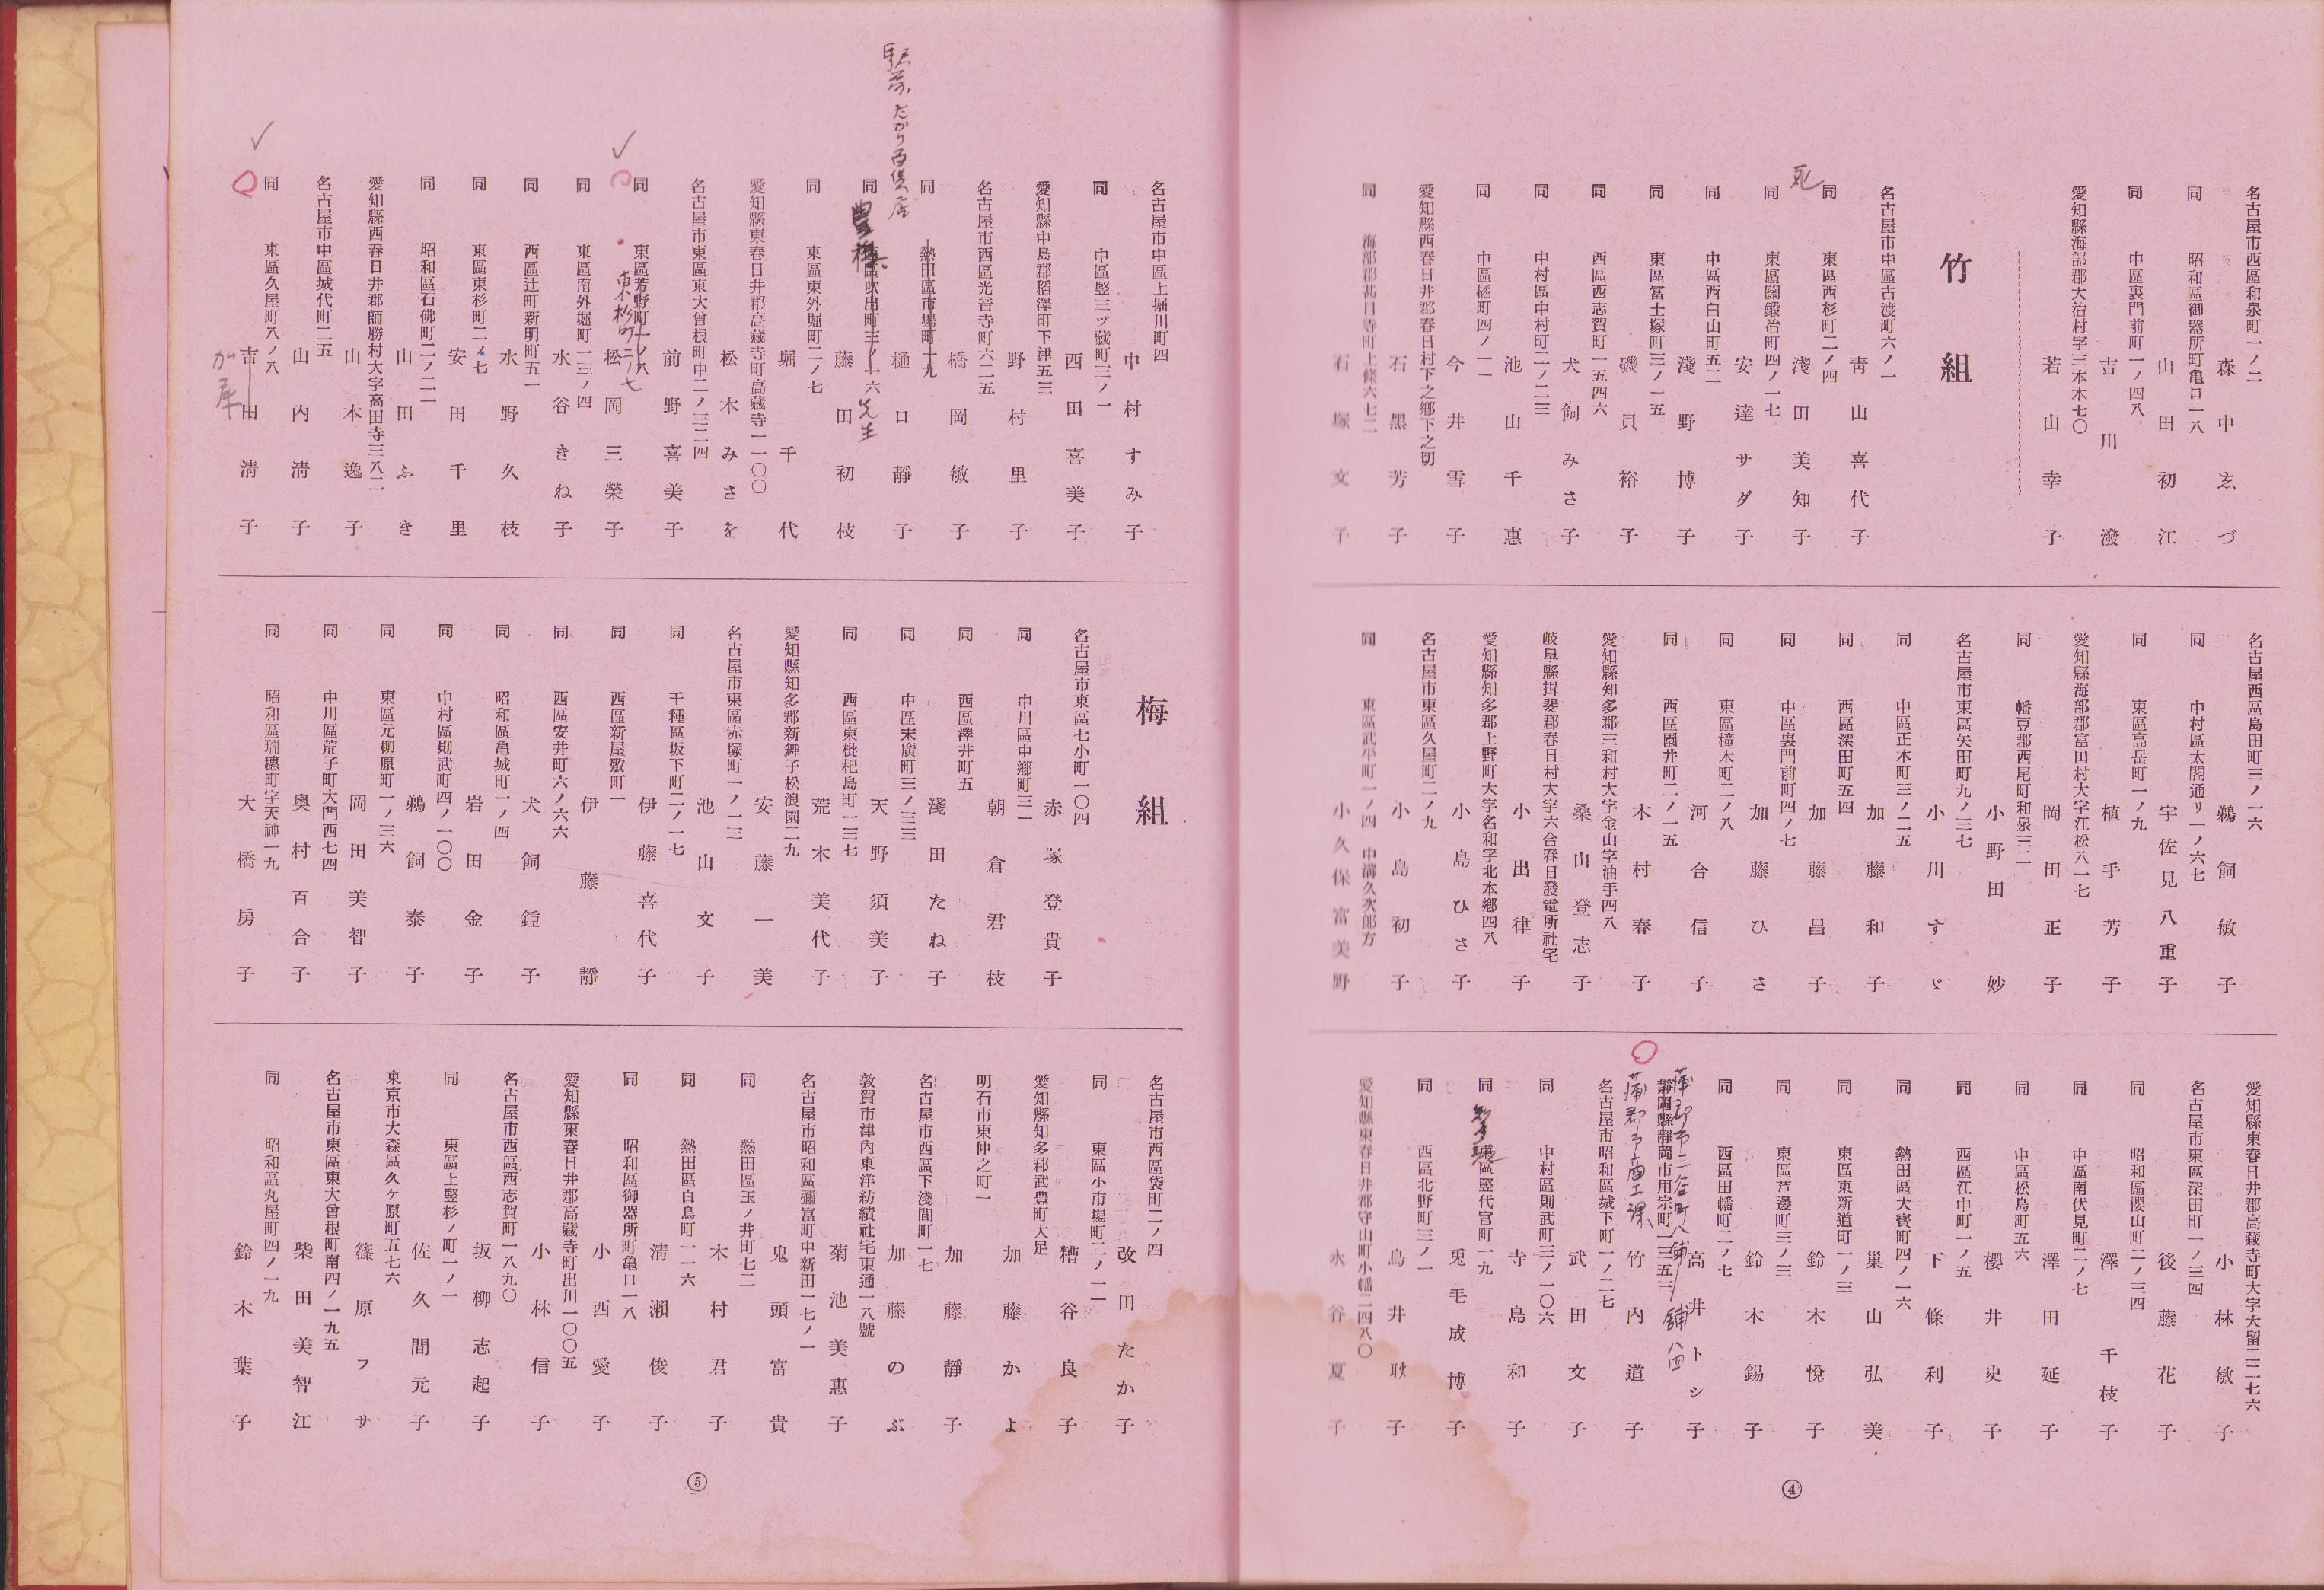 名古屋市西區和泉町一ノ二
森中ゑづ
同　昭和區御器所町亀口一八
山田初江
同　中區裏門前町一ノ四八
吉川潑
愛知縣海部郡大治村字三本木七〇
若山幸子
竹組
名古屋市中區古渡町六ノ一
靑山喜代子
同　東區西杉町二ノ四
死
淺田美知子
同　東區關鍛冶町四ノ一七
安達サダ子
同　中區西白山町五二
淺野博子
同　東區冨士塚町三ノ一五
磯貝裕子
同　西區西志賀町一五四六
犬飼みさ子
同　中村區中村町二ノ二三
池山千惠
同　中區橘町四ノ一一
今井雪子
愛知縣西春日井郡春日村下之鄕下之切
石黑芳子
同　海部郡甚目寺町上條六七二
石塚文子
名古屋西區島田町三ノ一六
鵜飼敏子
同　中村區太閤通リ一ノ六七
宇佐見八重子
同　東區高岳町一ノ九
植手芳子
愛知縣海部郡富田村大字江松八一七
岡田正子
同　幡豆郡西尾町和泉三二
小野田妙
名古屋市東區矢田町九ノ三七
小川すゞ
同　中區正木町三ノ二五
加藤和子
同　西區深田町五四
加藤昌子
同　中區裏門前町四ノ七
加藤ひさ
同　東區橦木町二ノ八
河合信子
同　西區園井町二ノ一五
木村春子
愛知縣知多郡三和村大字金山字油手四八
桑山登志子
岐阜縣揖斐郡春日村大字六合春日發電所社宅
小出律子
愛知縣知多郡上野町大字名和字北本鄕四八
小島ひさ子
名古屋市東區久屋町二ノ九
小島初子
同　東區武平町一ノ四　中溝久次郎方
小久保富美野
愛知縣東春日井郡高藏寺町大字大留二二七六
小林敏子
名古屋市東區深田町一ノ三四
後藤花子
同　昭和區櫻山町二ノ三四
澤千枝子
同　中區南伏見町二ノ七
澤田延子
同　中區松島町五六
櫻井史子
同　西區江中町一ノ五
下條利子
同　熱田區大寳町四ノ一六
巢山弘美
同　東區東新道町一ノ三
鈴木悅子
同　東區芦邊町三ノ三
鈴木錫子
同　西區田幡町二ノ七
高井トシ子
蒲郡市三谷町八舗
舗八四
靜岡縣靜岡市用宗町一三五三
竹內道子
蒲郡市商工課
名古屋市昭和區城下町一ノ二七
武田文子
同　中村區則武町三ノ一〇六
寺島和子
同　東區竪代官町一九
兎毛成博子
同　西區北野町三ノ一
鳥井耿子
愛知縣東春日井郡守山町小幡二四八〇
永谷夏子
④
名古屋市中區上堀川町四
中村すみ子
同　中區竪三ツ藏町三ノ一
西田喜美子
愛知縣中島郡稻澤町下津五三
野村里子
名古屋市西區光音寺町六二五
橋岡敏子
同　熱田區市場町一九
駅前たがり百倶店
樋口靜子
同　東區吹出町三ノ一六
豊橋　先生
藤田初枝
同　東區東外堀町二ノ七
堀千代
愛知縣東春日井郡高藏寺町高藏寺一一〇〇
松本みさを
名古屋市東區東大曾根町中二ノ三二四
前野喜美子
同　東區芳野町一ノ八
東杉町二ノ七
松岡三榮子
同　東區南外堀町一三ノ四
水谷きね子
同　西區辻町新明町五一
水野久枝
同　東區東杉町二ノ七
安田千里
同　昭和區石佛町二ノ二一
山田ふき
愛知縣西春日井郡師勝村大字高田寺三八二
山本逸子
名古屋市中區城代町二五
山內淸子
同　東區久屋町八ノ八
市田淸子
梅組
名古屋市東區七小町一〇四
赤塚登貴子
同　中川區中鄕町三一
朝倉君枝
同　西區澤井町五
淺田たね子
同　中區末廣町三ノ三三
天野須美子
同　西區東枇杷島町一三七
荒木美代子
愛知縣知多郡新舞子松浪園二九
安藤一美
名古屋市東區赤塚町一ノ一三
池山文子
同　千種區坂下町二ノ一七
伊藤喜代子
同　西區新屋敷町一
伊藤靜
同　西區安井町六ノ六六
犬飼鍾子
同　昭和區亀城町一ノ四
岩田金子
同　中村區則武町四ノ一〇〇
鵜飼泰子
同　東區元柳原町一ノ三六
岡田美智子
同　中川區荒子町大門西七四
奧村百合子
同　昭和區瑞穗町字天神一九
大橋房子
名古屋市西區袋町二ノ四
改田たか子
同　東區小市場町二ノ一一
糟谷良子
愛知縣知多郡武豊町大足
加藤かよ
明石市東仲之町一
加藤靜子
名古屋市西區下淺間町一七
加藤のぶ
敦賀市津內東洋紡績社宅東通一八號
菊池美惠子
名古屋市昭和區彌富町中新田一七ノ一
鬼頭富貴
同　熱田區玉ノ井町七二
木村君子
同　熱田區白鳥町一一六
淸瀨俊子
同　昭和區御器所町亀口一八
小西愛子
愛知縣東春日井郡高藏寺町出川一〇〇五
小林信子
名古屋市西區西志賀町一八九〇
坂柳志起子
同　東區上竪杉ノ町一ノ一
佐久間元子
東京市大森區久ヶ原町五七六
篠原フサ
名古屋市東區東大曾根町南四ノ一九五
柴田美智江
同　昭和區丸屋町四ノ一九
鈴木葉子
⑤